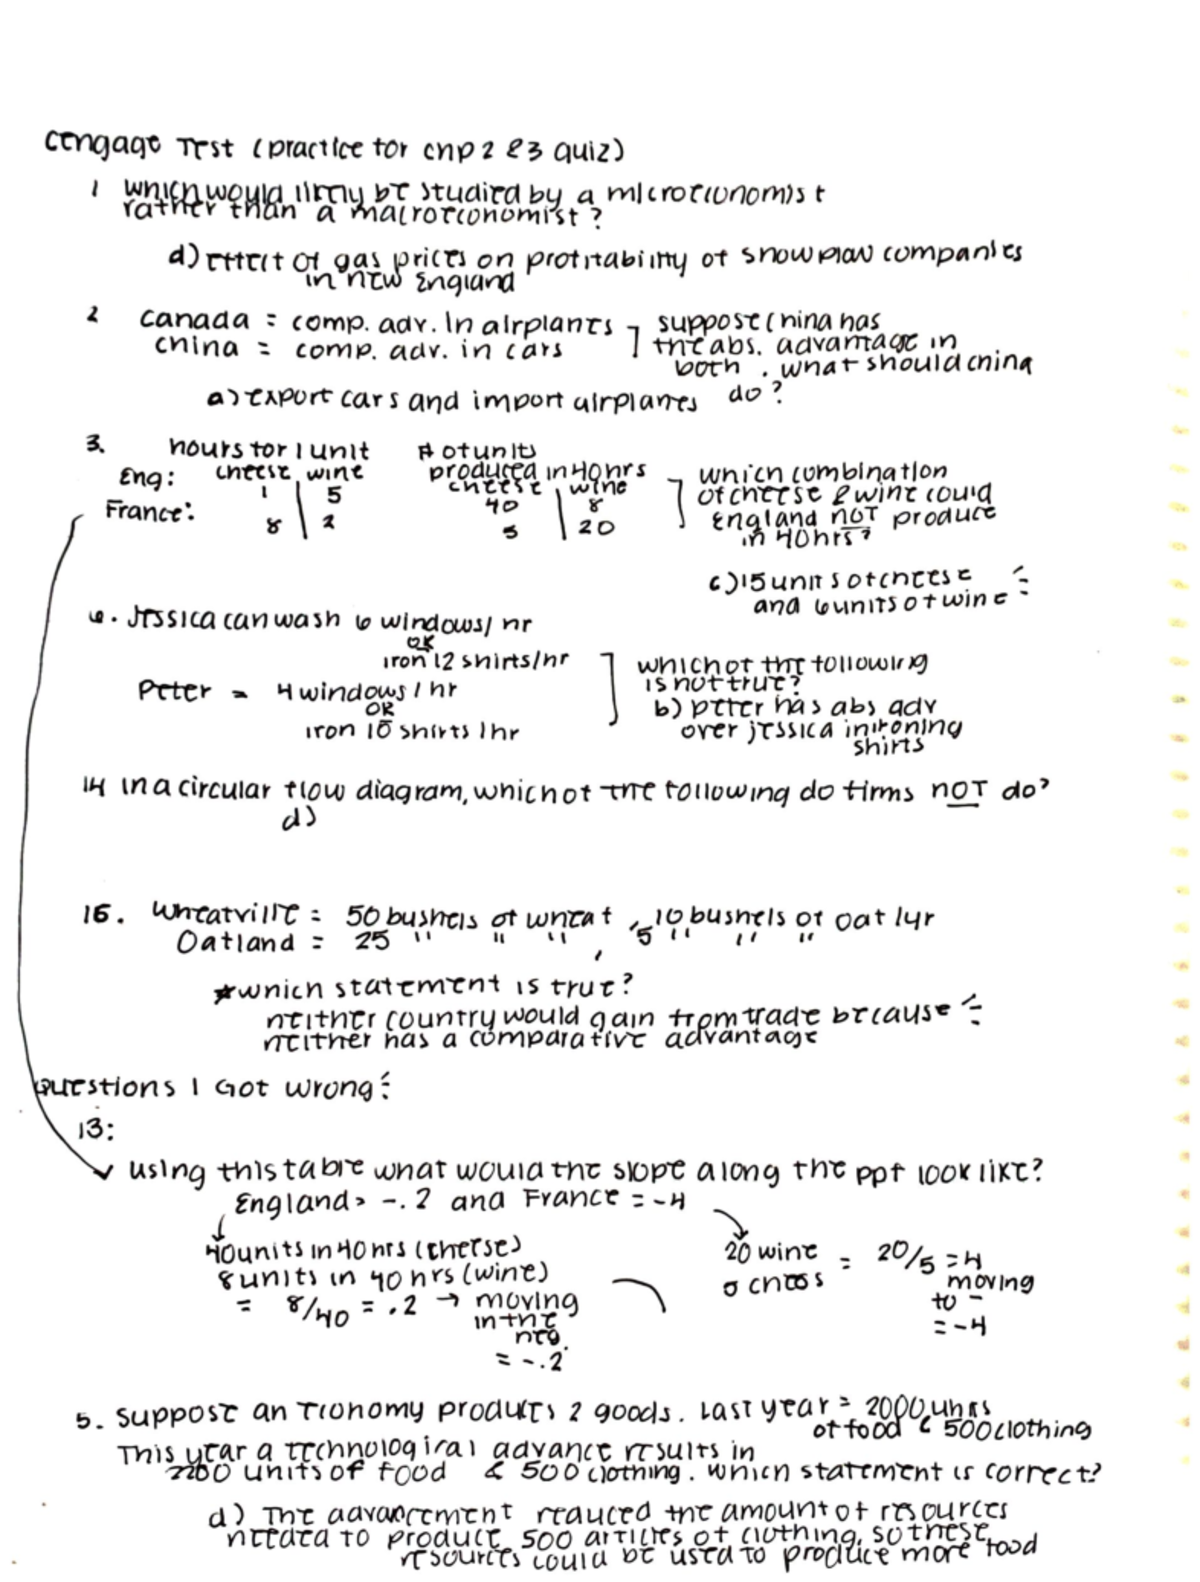 Cengage Test (practice for chp 2 & 3 quiz)
1 which would likely be studied by a microeconomist
rather than a macroeconomist?
d) effect of gas prices on profitability of snowplow companies
in new England
2 canada = comp. adv. In airplanes ] suppose china has
china = comp. adv. in cars the abs. advantage in
both. what should china
a) export cars and import airplanes do?
3. hours for 1 unit # of units
Eng: cheese | wine produced in 40 hrs ] which combination
1 | 5 cheese | wine of cheese & wine could
France: 40 | 8 England NOT produce
8 | 2 5 | 20 in 40 hrs?
c) 15 units of cheese
and 6 units of wine
6. Jessica can wash 6 windows/hr
OR
iron 12 shirts/hr ] which of the following
Peter = 4 windows/hr is not true?
OR b) peter has abs adv
iron 10 shirts/hr over jessica in ironing
shirts
14 in a circular flow diagram, which of the following do firms NOT do?
d)
16. Wheatville = 50 bushels of wheat, 10 bushels of oat /yr
Oatland = 25 " " " , 5 " " "
*which statement is true?
neither country would gain from trade because
neither has a comparative advantage
Questions I Got wrong:
13:
using this table what would the slope along the ppf look like?
England = -.2 and France = -4
40 units in 40 hrs (cheese) 20 wine = 20/5 = 4
8 units in 40 hrs (wine) moving
= 8/40 = .2 → moving to -
in the = -4
neg.
= -.2
5. Suppose an economy produces 2 goods. Last year = 2000 units
of food & 500 clothing
This year a technological advance results in
2200 units of food & 500 clothing. which statement is correct?
d) The advancement reduced the amount of resources
needed to produce 500 articles of clothing, so these
resources could be used to produce more food